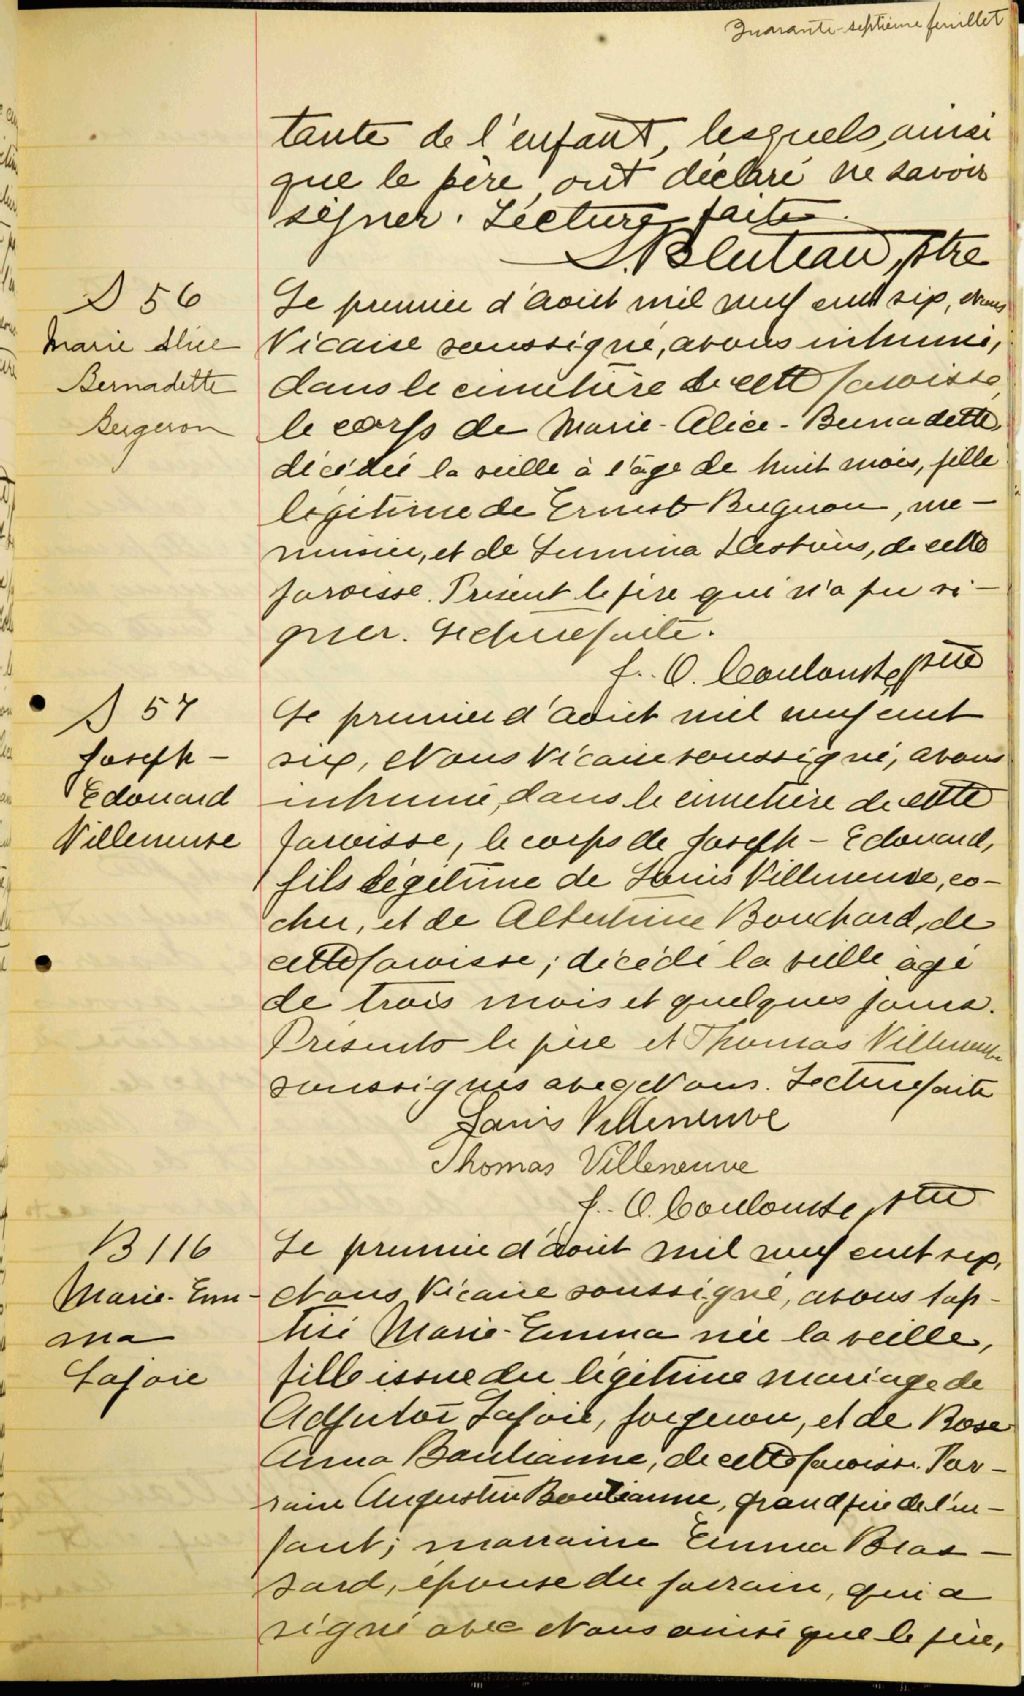 Quarante-septième feuillet
tante de l'enfant, lesquels, ainsi
que le père, ont déclaré ne savoir
signer. Lecture faite.
L. Bluteau, ptre
S 56
Marie Alice
Bernadette
Bergeron
Le premier d'août mil neuf cent six, Nous
Vicaire soussigné, avons inhumé,
dans le cimetière de cette paroisse,
le corps de Marie-Alice-Bernadette,
décédée la veille à l'âge de huit mois, fille
légitime de Ernest Bergeron, me-
nuisier, et de , de cette
paroisse. Présent le père qui n'a pu si-
gner. Lecture faite.
J. O. Coulombe, ptre
S 57
Joseph-
Edouard
Villeneuve
Le premier d'août mil neuf cent
six, Nous Vicaire soussigné, avons
inhumé, dans le cimetière de cette
paroisse, le corps de Joseph-Edouard,
fils légitime de Louis Villeneuve, co-
cher, et de Albertine Bouchard, de
cette paroisse; décédé la veille âgé
de trois mois et quelques jours.
Présents le père et Thomas Villeneuve
soussignés avec Nous. Lecture faite
Louis Villeneuve
Thomas Villeneuve
J. O. Coulombe, ptre
B 116
Marie-Em-
ma
Lajoie
Le premier d'août mil neuf cent six,
Nous, Vicaire soussigné, avons bap-
tisé Marie-Emma née la veille,
fille issue du légitime mariage de
Adjutor Lajoie, forgeron, et de Rose-
Anna Boulianne, de cette paroisse. Par-
rain Augustin Boulianne, grand père de l'en-
fant; marraine Emma Bras-
sard, épouse du parrain, qui a
signé avec Nous ainsi que le père,